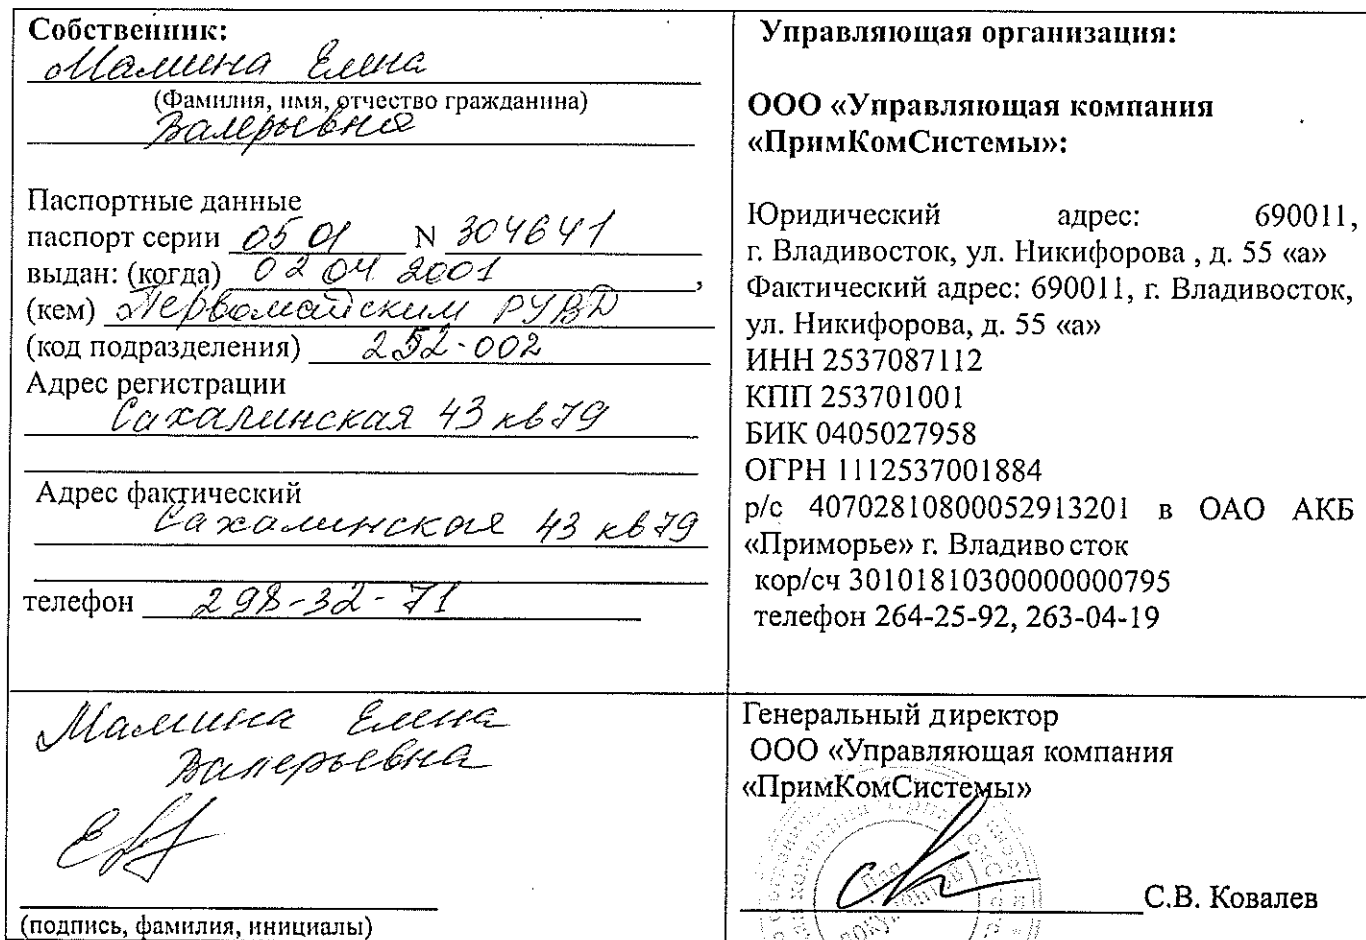 Собственник:
Мамина Елена
(Фамилия, имя, отчество гражданина)
Валерьевна
Паспортные данные
паспорт серии 05 01 N 304641
выдан: (когда) 02 04 2001,
(кем) Первомайским РУВД
(код подразделения) 252-002
Адрес регистрации
Сахалинская 43 кв 79
Адрес фактический
Сахалинская 43 кв 79
телефон 298-32-71
Мамина Елена
Валерьевна
(подпись, фамилия, инициалы)
Управляющая организация:
ООО «Управляющая компания
«ПримКомСистемы»:
Юридический адрес: 690011,
г. Владивосток, ул. Никифорова , д. 55 «а»
Фактический адрес: 690011, г. Владивосток,
ул. Никифорова, д. 55 «а»
ИНН 2537087112
КПП 253701001
БИК 0405027958
ОГРН 1112537001884
р/с 40702810800052913201 в ОАО АКБ
«Приморье» г. Владивосток
кор/сч 30101810300000000795
телефон 264-25-92, 263-04-19
Генеральный директор
ООО «Управляющая компания
«ПримКомСистемы»
Для
документов
С.В. Ковалев